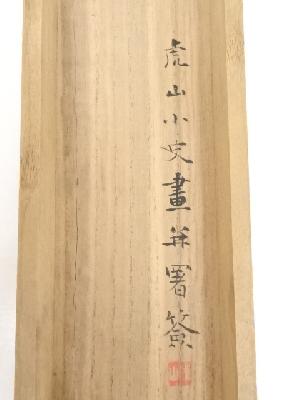 虎山小史畫并署簽